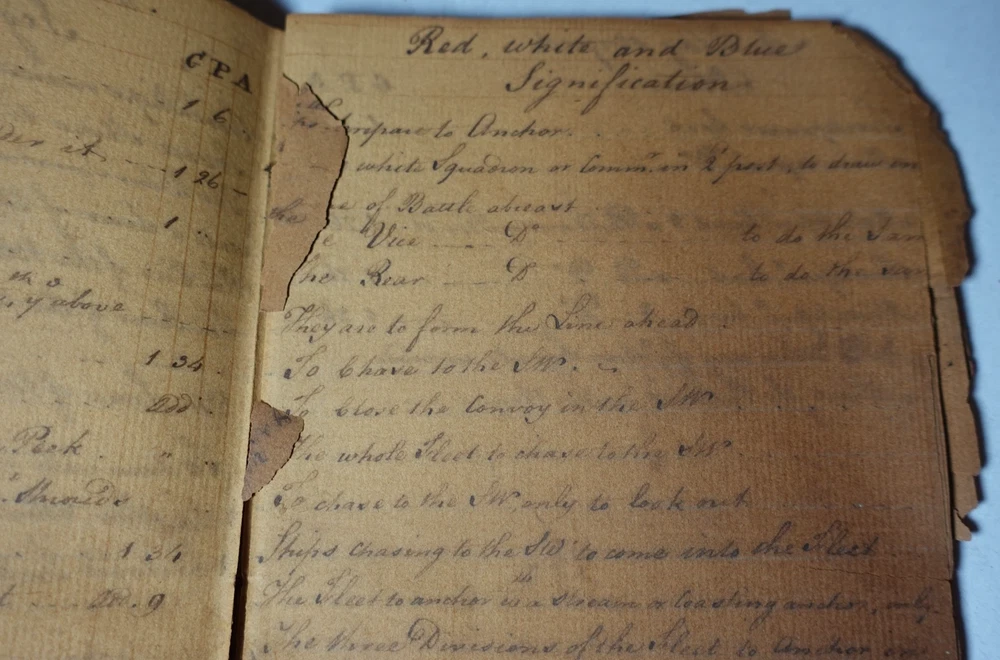 C P A
1 6
1 26
1
y above
1 34
Peak "
Shrouds
1 34
9
Red, white and Blue
Signification
prepare to Anchor.
white Squadron or Comm.r in 2d post, to draw in
the of Battle abreast
Vice D.o to do the Sam
The Rear D.o to do the sam
They are to form the Line ahead
To Chase to the SW.
To Close the Convoy in the SW
The whole Fleet to chase to the SW
To chase to the SW, only to look out
Ships chasing to the SW to come into the Fleet
The Fleet to anchor wth a stream or Coasting anchor, only
The three Divisions of the Fleet to Anchor